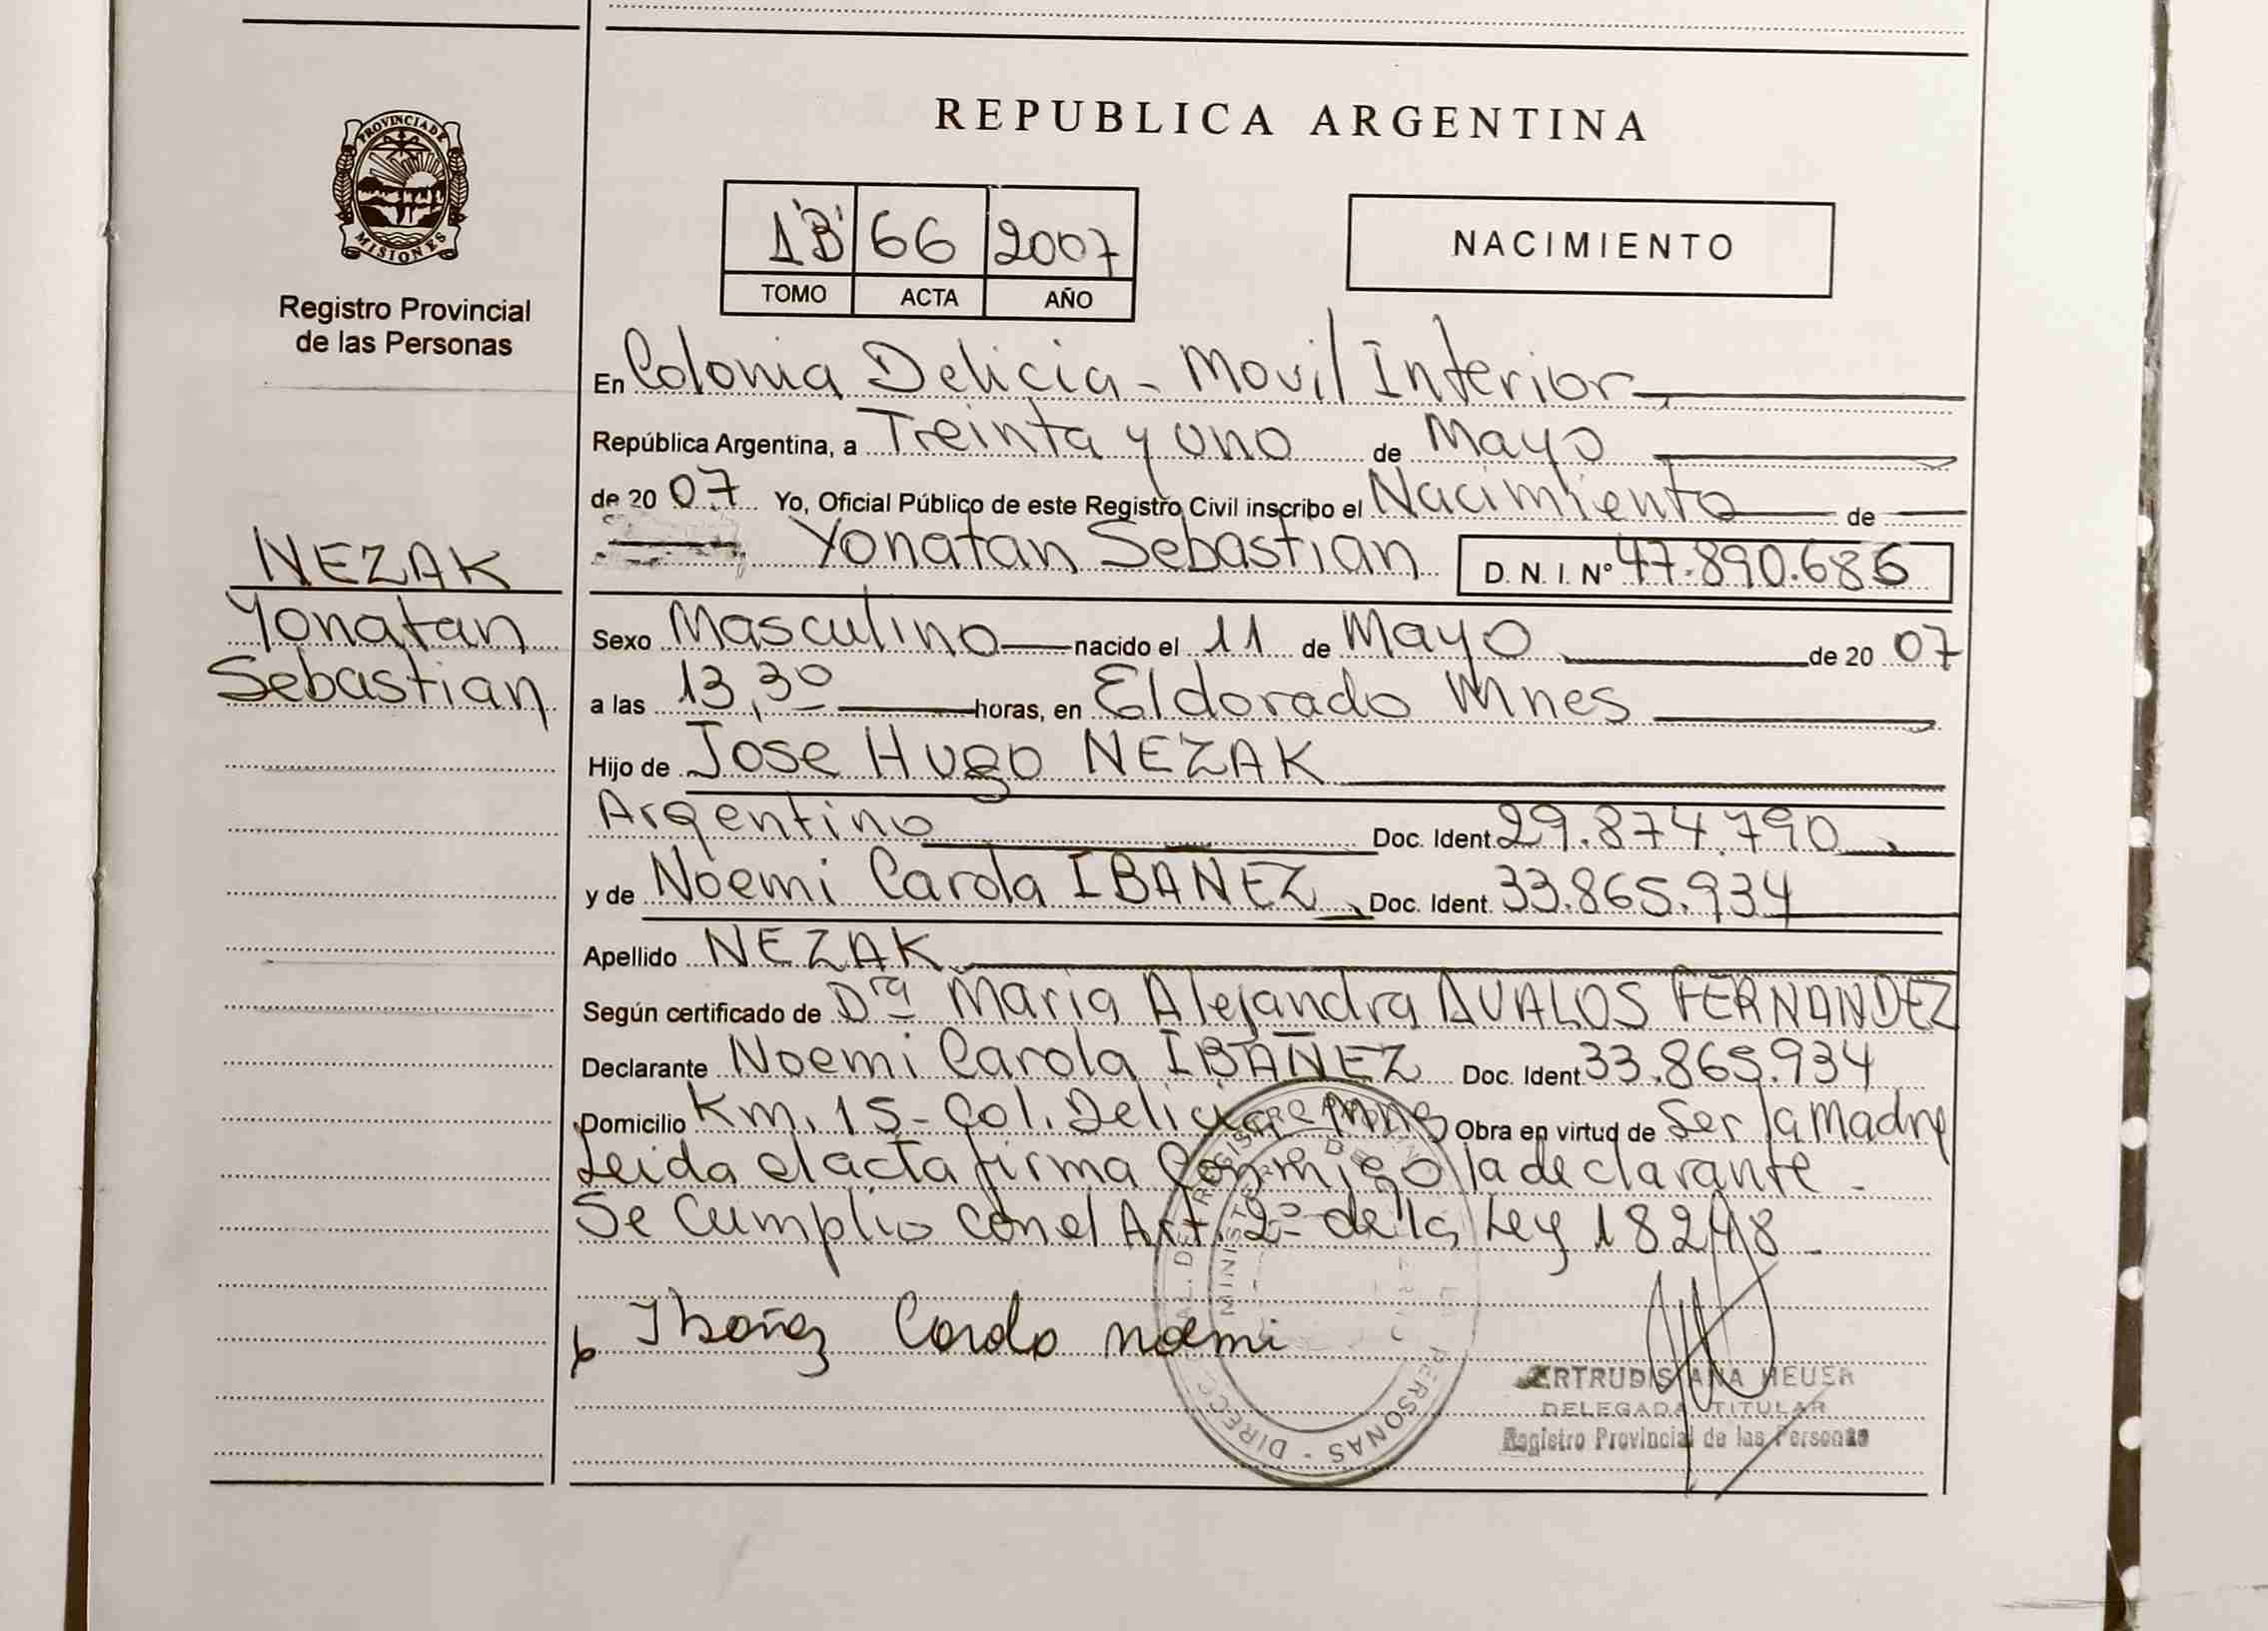 REPUBLICA ARGENTINA
PROVINCIA DE
MISIONES
Registro Provincial
de las Personas
1"B" 66 2007
TOMO ACTA AÑO
NACIMIENTO
En Colonia Delicia - Movil Interior
República Argentina, a Treinta y uno de Mayo
de 20 07 Yo, Oficial Público de este Registro Civil inscribo el Nacimiento de
Yonatan Sebastian D. N. I. Nº 47.890.686
NEZAK
Yonatan
Sebastian
Sexo Masculino nacido el 11 de Mayo de 20 07
a las 13,30 horas, en Eldorado Mnes
Hijo de Jose Hugo NEZAK
Argentino Doc. Ident. 29.874.790
y de Noemi Carola IBAÑEZ Doc. Ident. 33.865.934
Apellido NEZAK
Según certificado de Dra Maria Alejandra AVALOS FERNANDEZ
Declarante Noemi Carola IBAÑEZ Doc. Ident. 33.865.934
Domicilio Km. 15 - Col. Delicia Mnes Obra en virtud de Ser la Madre
Leida el acta firma Conmigo la declarante -
Se Cumplio con el Art. 2º de la Ley 18248 -
Ibañez Carola noemi
ERTRUDIS ANA HEUER
DELEGADA TITULAR
Registro Provincial de las Personas